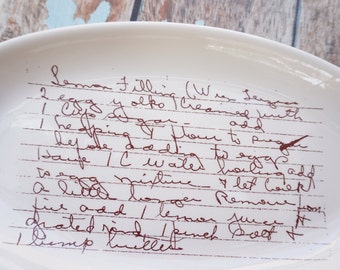 Lemon Filling (Mrs.
2 egg yolks creamed with
1 cup sugar add
1 heaping T flour to sugar
before adding to eggs
Have 1 C water boiling add
to egg mixture & let cook
a little longer Remove from
fire add 1 lemon juice &
grated rind 1 pinch salt &
1 lump butter